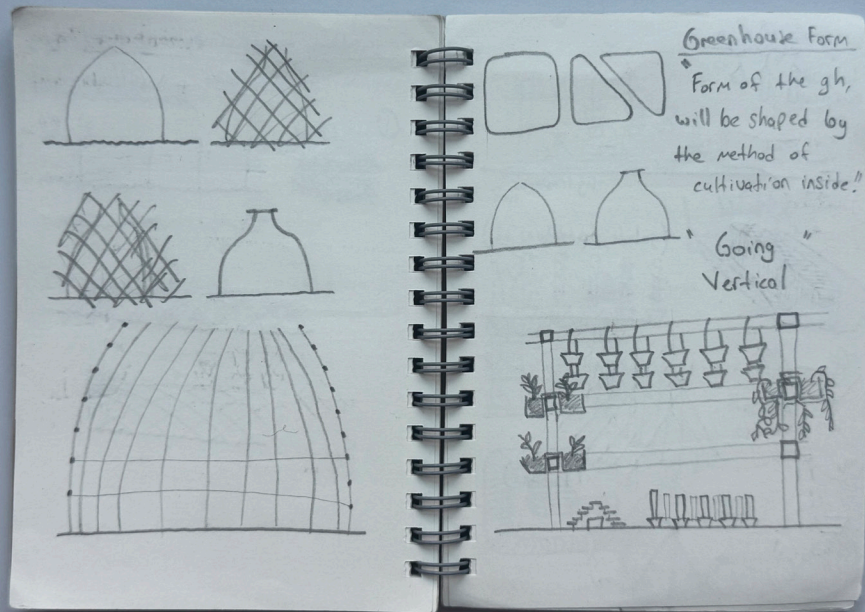 Greenhouse Form
"Form of the gh,
will be shaped by
the method of
cultivation inside."
"Going"
Vertical